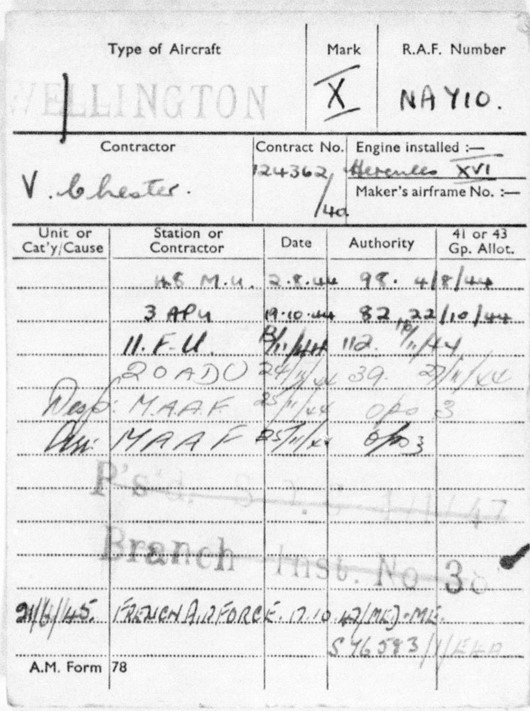 Type of Aircraft Mark R.A.F. Number
WELLINGTON X NA710.
Contractor Contract No. Engine installed :—
V. Chester. 124362/40 Hercules XVI
Maker's airframe No. :—
Unit or Cat'y/Cause Station or Contractor Date Authority 41 or 43 Gp. Allot.
48 M.U. 2.8.44 98. 4/8/44
3 APU 19.10.44 82 22/10/44
11. F.U. 112.
20 ADU 24/11/44 39. 27/11/44
Desp: M.A.A.F 25/11/44 opo 3
Arr: MAAF 25/11/44 opo 3
P's'd. 47
Branch Inst. No 38
21/6/45. FRENCH AIRFORCE. 17.10
S 46583/1/
A.M. Form 78